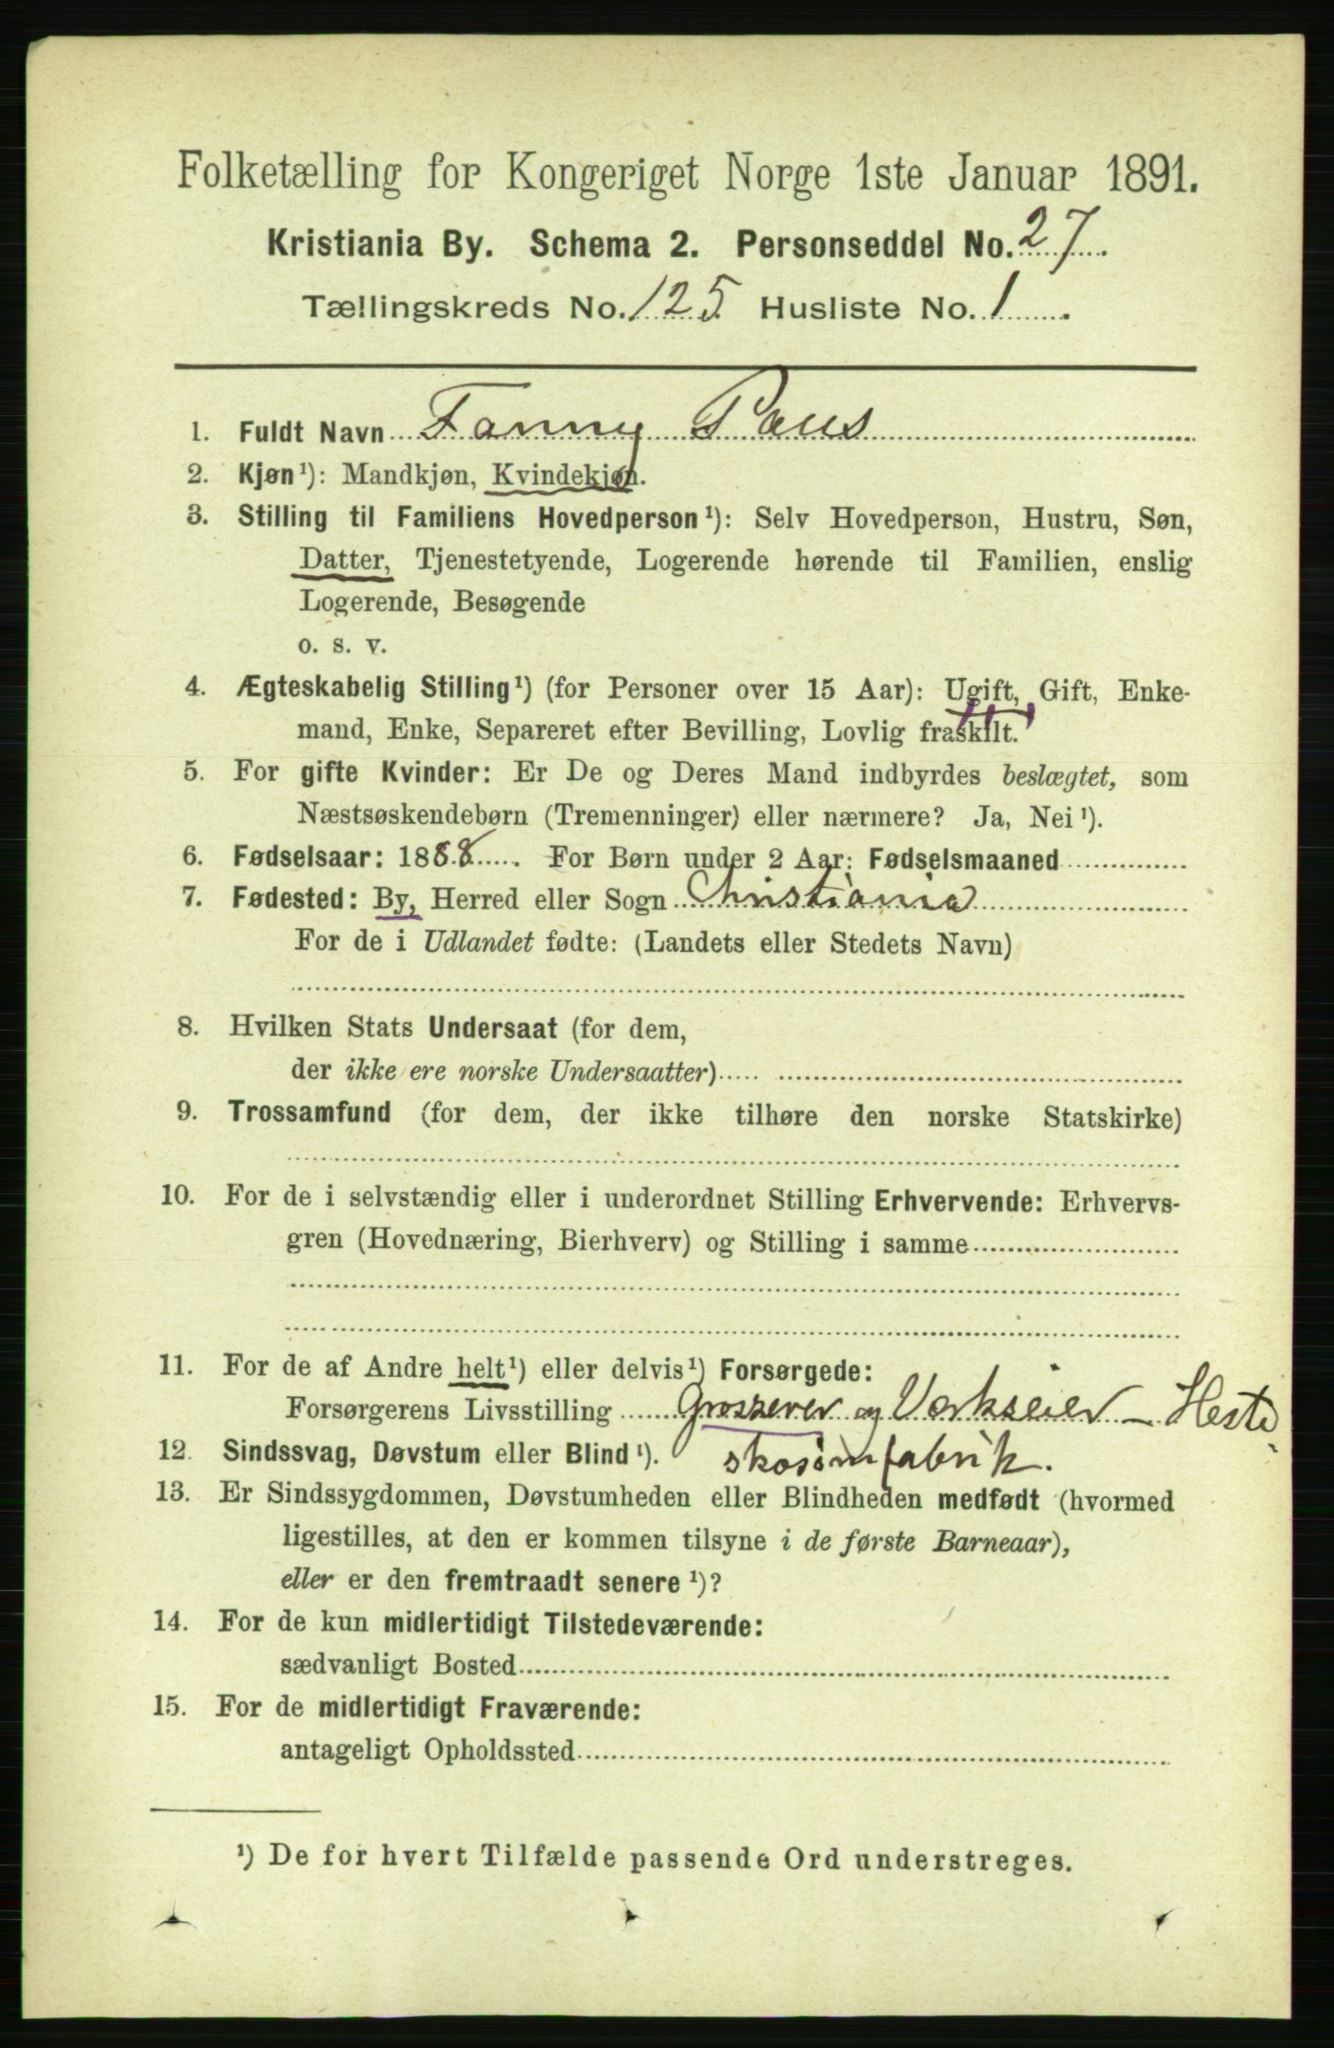 Folketælling for Kongeriget Norge 1ste Januar 1891.
Kristiania By. Schema 2. Personseddel No. 27.
Tællingskreds No. 125 Husliste No. 1.
1. Fuldt Navn Fanny Paus
2. Kjøn¹): Mandkjøn, Kvindekjøn.
3. Stilling til Familiens Hovedperson¹): Selv Hovedperson, Hustru, Søn,
Datter, Tjenestetyende, Logerende hørende til Familien, enslig
Logerende, Besøgende
o. s. v.
4. Ægteskabelig Stilling¹) (for Personer over 15 Aar): Ugift, Gift, Enke-
mand, Enke, Separeret efter Bevilling, Lovlig fraskilt.
5. For gifte Kvinder: Er De og Deres Mand indbyrdes beslægtet, som
Næstsøskendebørn (Tremenninger) eller nærmere? Ja, Nei¹).
6. Fødselsaar: 1888. For Børn under 2 Aar: Fødselsmaaned
7. Fødested: By, Herred eller Sogn Christiania
For de i Udlandet fødte: (Landets eller Stedets Navn)
8. Hvilken Stats Undersaat (for dem,
der ikke ere norske Undersaatter)
9. Trossamfund (for dem, der ikke tilhøre den norske Statskirke)
10. For de i selvstændig eller i underordnet Stilling Erhvervende: Erhvervs-
gren (Hovednæring, Bierhverv) og Stilling i samme
11. For de af Andre helt¹) eller delvis¹) Forsørgede:
Forsørgerens Livsstilling Grosserer og Værkseier – Heste
12. Sindssvag, Døvstum eller Blind¹). skosømfabrik.
13. Er Sindssygdommen, Døvstumheden eller Blindheden medfødt (hvormed
ligestilles, at den er kommen tilsyne i de første Barneaar),
eller er den fremtraadt senere¹)?
14. For de kun midlertidigt Tilstedeværende:
sædvanligt Bosted
15. For de midlertidigt Fraværende:
antageligt Opholdssted
¹) De for hvert Tilfælde passende Ord understreges.